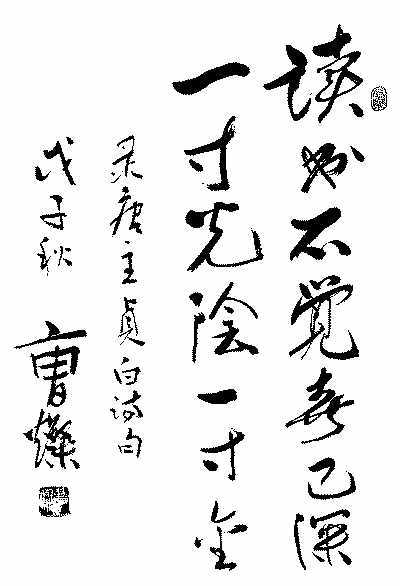 读书不觉春已深
一寸光陰一寸金
录唐王贞白诗句
戊子秋
曹灿